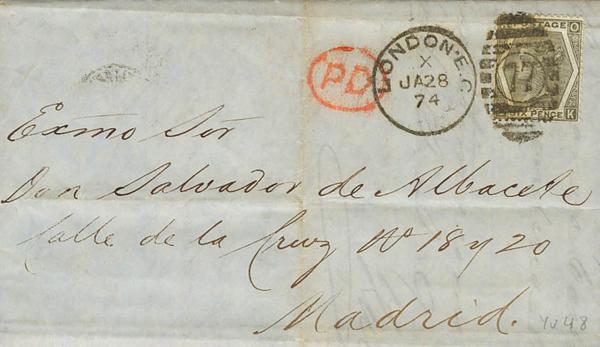 POSTAGE O
LONDON·E.C
X
JA28
74
PD
SIX PENCE K
Exmo Sor
Don Salvador de Albacete
Calle de la Cruz No 18 y 20
Madrid.
YV48